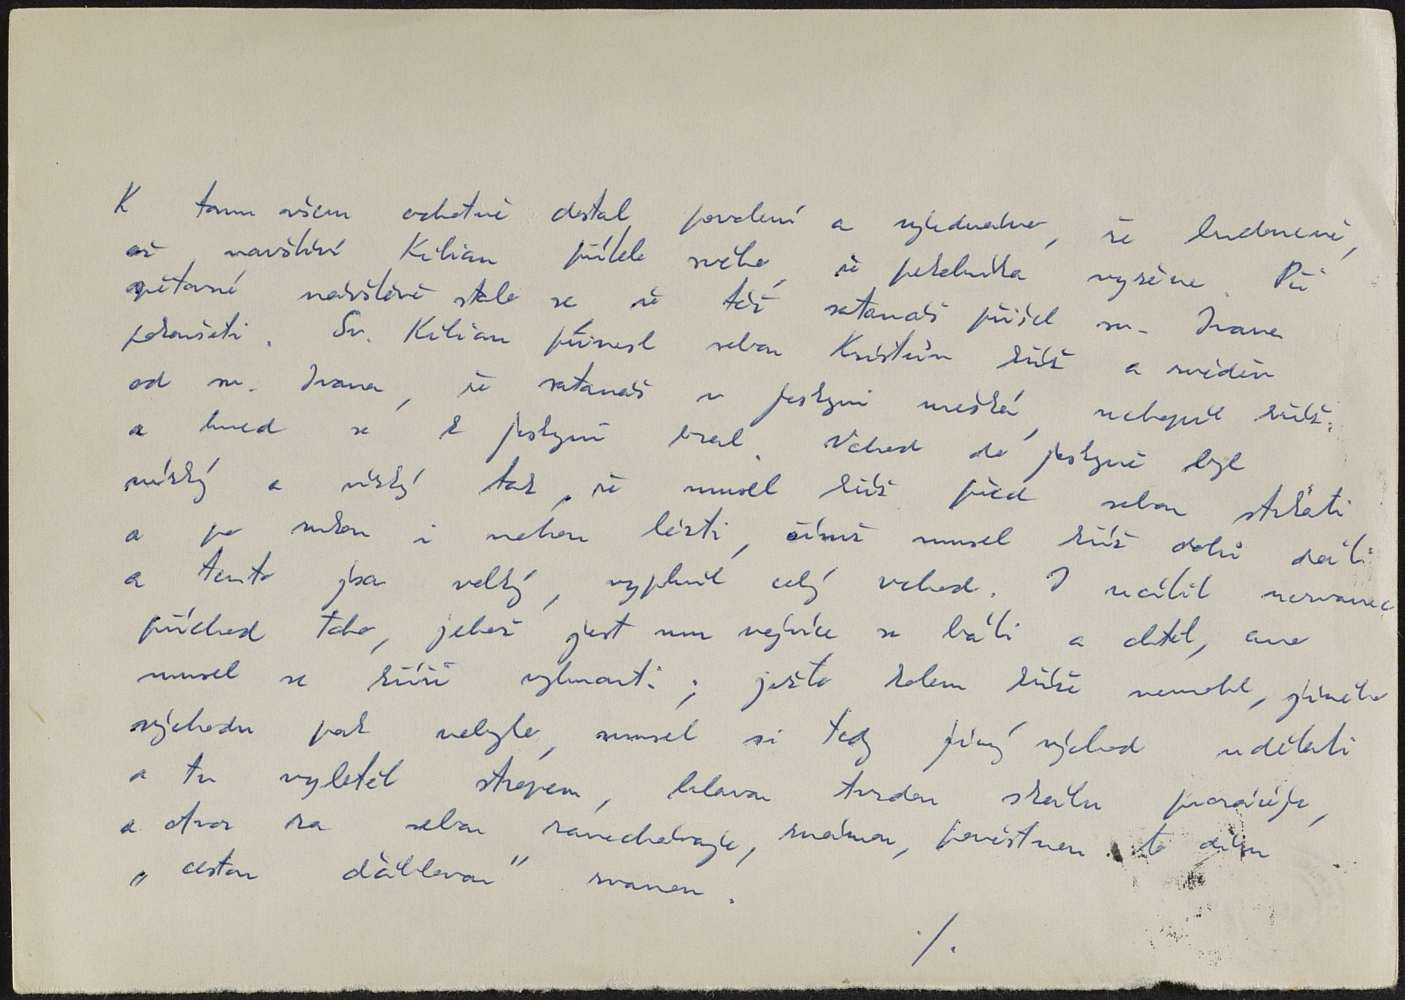 K tomu ovšem ochotně dostal povolení a vyjednáno, že budoucně,
až navštíví Kilian přítele svého, že pekelníka vyžene. Při
opětovné návštěvě stalo se že též satanáš přišel sv. Ivana
pokoušeti. Sv. Kilian přinesl sebou Kristův kříž a zvěděv
od sv. Ivana, že satanáš v jeskyni mešká, uchopil kříž,
a hned se k jeskyni bral. Vchod do jeskyně byl
nízký a úzký tak, že musel kříž před sebou strkati
a po rukou i nohou lézti, čímž musel kříž dolů dáti
a tento jsa velký, vyplnil celý vchod. I ucítil nezvanec
příchod toho, jehož jest mu nejvíce se báti a chtěl, ano
musel se kříži vyhnouti; ježto kolem kříže nemohl, jiného
východu pak nebylo, musel si tedy jiný východ udělati
a tu vyletěl stropem, hlavou tvrdou skálu prorážeje,
a otvor za sebou zanechávaje, známou, pověstnou to díru
„cestou ďáblovou" zvanou.
./.